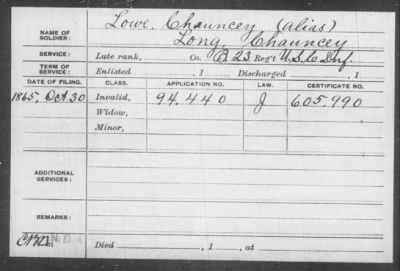 Lowe, Chauncey (alias)
NAME OF SOLDIER: Long, Chauncey
SERVICE: Late rank, Co. B. 23 Reg't U.S.C. Inf.
TERM OF SERVICE: Enlisted , 1 Discharged , 1
DATE OF FILING. CLASS. APPLICATION NO. LAW. CERTIFICATE NO.
1865, Oct 30 Invalid, 94.440 J 605.990
Widow,
Minor,
ADDITIONAL SERVICES:
REMARKS:
Died , 1 , at